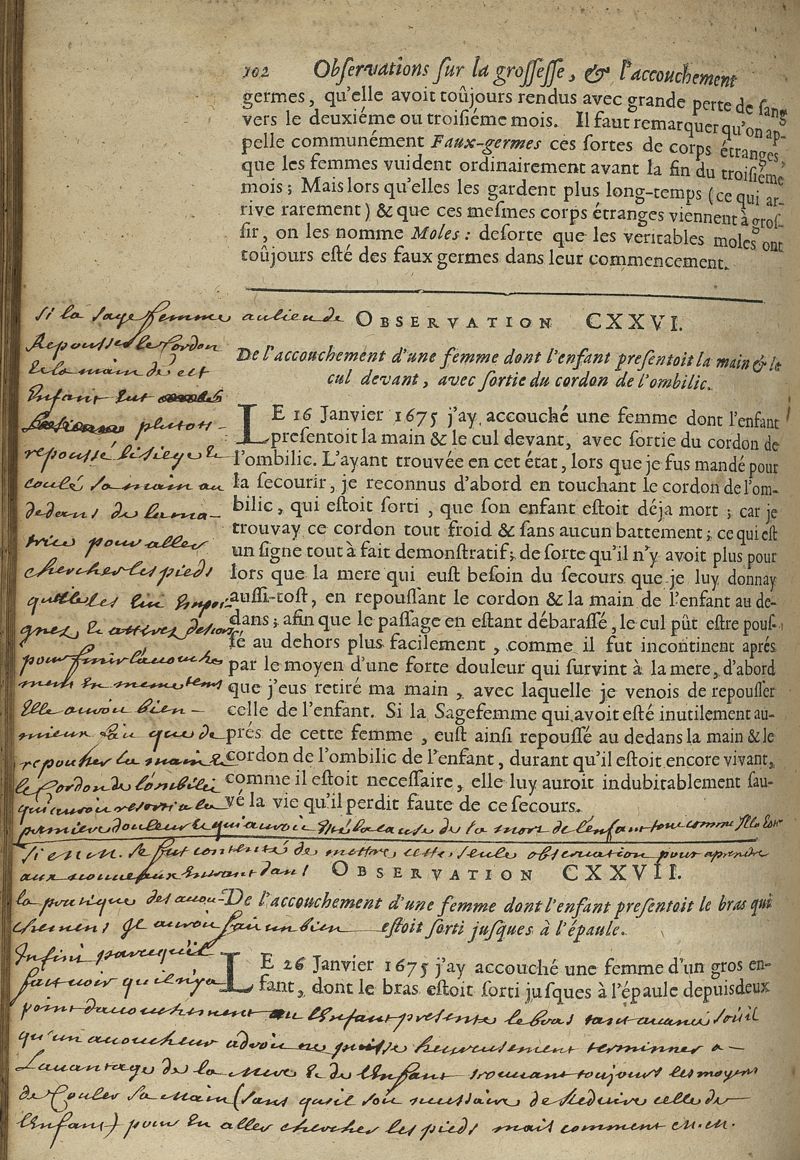 102 Obſervations ſur la groſſeſſe, & l'accouchement
germes, qu'elle avoit toûjours rendus avec grande perte de ſang
vers le deuxiéme ou troiſiéme mois. Il faut remarquer qu'on ap-
pelle communément Faux-germes ces ſortes de corps étranges,
que les femmes vuident ordinairement avant la fin du troiſiéme
mois; Mais lors qu'elles les gardent plus long-temps (ce qui ar-
rive rarement) & que ces meſmes corps étranges viennent à groſ-
ſir, on les nomme Moles: deſorte que les veritables moles ont
toûjours eſté des faux germes dans leur commencement.
OBSERVATION CXXVI.
De l'accouchement d'une femme dont l'enfant preſentoit la main & le
cul devant, avec ſortie du cordon de l'ombilic.
LE 16 Janvier 1675 j'ay accouché une femme dont l'enfant
preſentoit la main & le cul devant, avec ſortie du cordon de
l'ombilic. L'ayant trouvée en cet état, lors que je fus mandé pour
la ſecourir, je reconnus d'abord en touchant le cordon de l'om-
bilic, qui eſtoit ſorti, que ſon enfant eſtoit déja mort; car je
trouvay ce cordon tout froid & ſans aucun battement; ce qui eſt
un ſigne tout à fait demonſtratif; de ſorte qu'il n'y avoit plus pour
lors que la mere qui euſt beſoin du ſecours que je luy donnay
auſſi-toſt, en repouſſant le cordon & la main de l'enfant au de-
dans; afin que le paſſage en eſtant débaraſſé, le cul pût eſtre pouſ-
ſé au dehors plus facilement, comme il fut incontinent aprés
par le moyen d'une forte douleur qui ſurvint à la mere, d'abord
que j'eus retiré ma main, avec laquelle je venois de repouſſer
celle de l'enfant. Si la Sagefemme qui avoit eſté inutilement au-
prés de cette femme, euſt ainſi repouſſé au dedans la main & le
cordon de l'ombilic de l'enfant, durant qu'il eſtoit encore vivant,
comme il eſtoit neceſſaire, elle luy auroit indubitablement ſau-
vé la vie qu'il perdit faute de ce ſecours.
OBSERVATION CXXVII.
De l'accouchement d'une femme dont l'enfant preſentoit le bras qui
eſtoit ſorti juſques à l'épaule.
LE 26 Janvier 1675 j'ay accouché une femme d'un gros en-
fant, dont le bras eſtoit ſorti juſques à l'épaule depuis deux
Si la sage femme au lieu de
repousser le cordon
& la main de cet
enfant eut
plutost
repoussé le siege &
coulé sa main au
dedans de la ma-
trice pour aller
chercher les pieds
pour finir laccouche
ment en meme tems
elle auroit bien
mieux fait que de
repousser la main &
le cordon de lombilic
premiere douleur & qui auroit la cause de la mort de lenfant tout comme
Si en m. se fut contenté de mettre cette seule observation pour aprendre
dans
la pratique des accou-
chemens il auroit fait un bien
infini parce quil
fait voir quil ny a
point daccouchement ou lenfant presente le bras tant avancé soit il
qu'un accoucheur adroit ne puisse heureusement terminner a
Lauantage de la mere & de lenfant trouuant toujours les moyens
de couler sa main (sans quil soit necessaire de reduire celle de
lenfant) pour en aller chercher les pieds mais comment m. m.